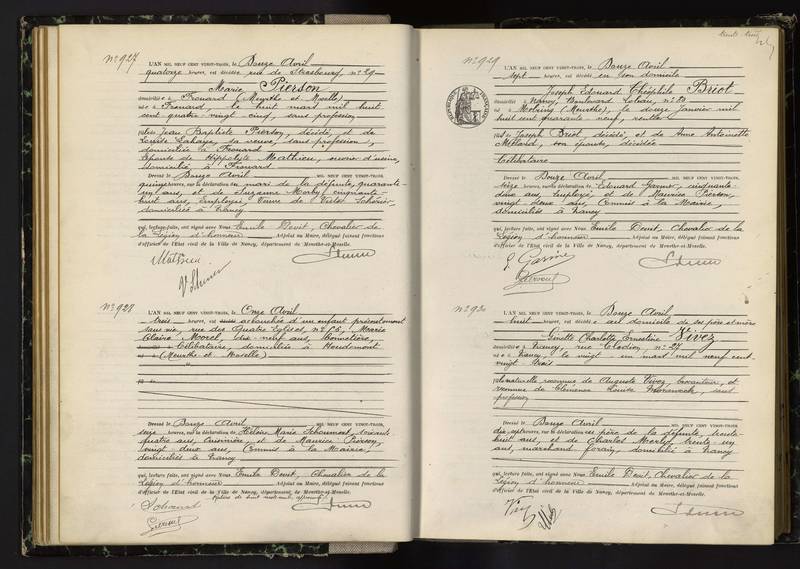 N° 927
L'AN MIL NEUF CENT VINGT-TROIS, le Douze Avril
quatorze heures, est décédée rue de Strasbourg, n° 29
Marie Pierson
domiciliée à Frouard (Meurthe et Moselle)
née à Frouard, le huit Mars mil huit
cent quatre-vingt cinq, sans profession
fille de Jean Baptiste Pierson, décédé, et de
sa veuve, sans profession,
domiciliée à Frouard
Epouse de Hippolyte Mathieu, ouvrier d'usine,
domicilié à Frouard
Dressé le Douze Avril MIL NEUF CENT VINGT-TROIS,
quinze heures, sur la déclaration du mari de la défunte, quarante-
un ans, et de Suzanne cinquante-
huit ans, employée, Veuve de
domiciliés à Nancy
qui, lecture faite, ont signé avec Nous Emile Devit, Chevalier de
la Légion d'honneur Adjoint au Maire, délégué faisant fonctions
d'officier de l'Etat civil de la Ville de Nancy, département de Meurthe-et-Moselle.
Mathieu
N° 928
L'AN MIL NEUF CENT VINGT-TROIS, le Onze Avril
trois heures, est accouchée d'un enfant présentement
sans vie, rue des Quatre Eglises, n° 66, Marie
Claire Morel, dix neuf ans, Bonnetière,
Célibataire, domiciliée à Houdemont
(Meurthe et Moselle)
Dressé le Douze Avril MIL NEUF CENT VINGT-TROIS,
seize heures, sur la déclaration de Héloïse Marie soixante
quatre ans, Cuisinière, et de Maurice Pierson,
vingt deux ans, Commis à la Mairie,
domiciliés à Nancy
qui, lecture faite, ont signé avec Nous Emile Devit, Chevalier de la
Légion d'honneur Adjoint au Maire, délégué faisant fonctions
d'officier de l'Etat civil de la Ville de Nancy, département de Meurthe-et-Moselle.
N° 929
L'AN MIL NEUF CENT VINGT-TROIS, le Douze Avril
sept heures, est décédé en son domicile
Joseph Edouard Théophile Briot
domicilié à Nancy, Boulevard Lobau, n° 23
né à (Meurthe), le douze Janvier mil
huit cent quarante-neuf, rentier
fils de Joseph Briot décédé, et de Anne Antoinette
son épouse, décédée
Célibataire
Dressé le Douze Avril MIL NEUF CENT VINGT-TROIS,
seize heures, sur la déclaration de Edouard cinquante
deux ans, Employé, et de Maurice Pierson,
vingt deux ans, Commis à la Mairie,
domiciliés à Nancy
qui, lecture faite, ont signé avec Nous Emile Devit, Chevalier de la
Légion d'honneur Adjoint au Maire, délégué faisant fonctions
d'officier de l'Etat civil de la Ville de Nancy, département de Meurthe-et-Moselle.
N° 930
L'AN MIL NEUF CENT VINGT-TROIS, le Douze Avril
huit heures, est décédée au domicile de ses père et mère
Ginette Charlotte Ernestine Vivez
domiciliée à Nancy, rue Clodion, n° 27
née à Nancy, le vingt un Mars mil neuf cent
vingt-trois
fille naturelle reconnue de Auguste Vivez, et
reconnue de Clémence Louise sans
profession
Dressé le Douze Avril MIL NEUF CENT VINGT-TROIS,
dix sept heures, sur la déclaration du père de la défunte, trente
huit ans, et de Charles trente un
ans, marchand forain, domiciliés à Nancy
qui, lecture faite, ont signé avec Nous Emile Devit, Chevalier de la
Légion d'honneur Adjoint au Maire, délégué faisant fonctions
d'officier de l'Etat civil de la Ville de Nancy, département de Meurthe-et-Moselle.